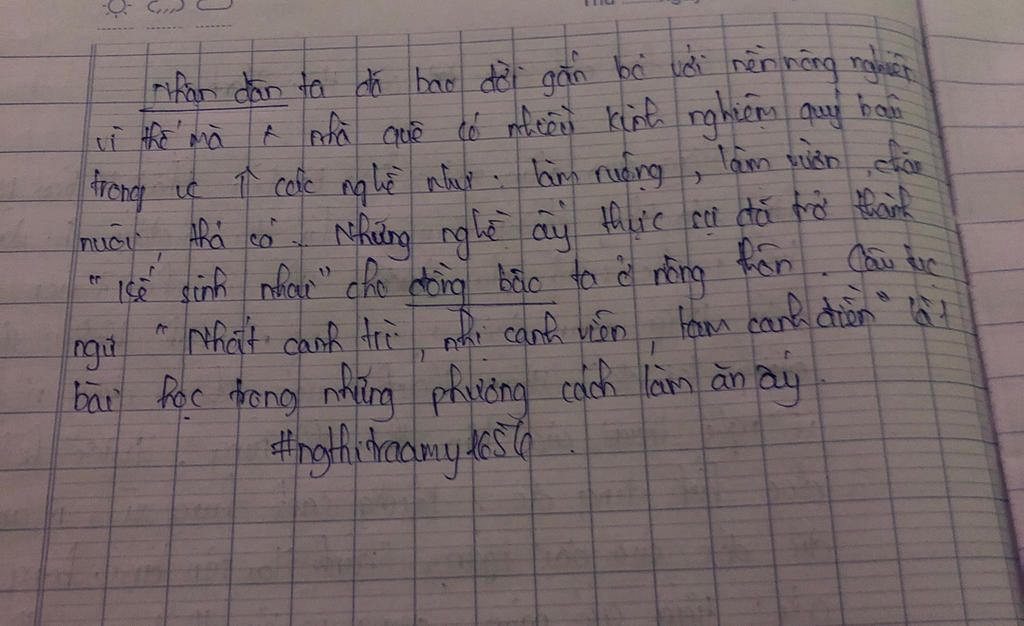 Nhân dân ta đã bao đời gắn bó với nền nông nghiệp
vì thế mà nhà quê có nhiều kinh nghiệm quý báu
trong các nghề như: làm ruộng, làm vườn, chăn
nuôi, thả cá. Những nghề ấy thực sự đã trở thành
"kế sinh nhai" cho đồng bào ta ở nông thôn. Câu tục
ngữ "Nhất canh trì, nhị canh viên, tam canh điền" là 1
bài học trong những phương cách làm ăn ấy.